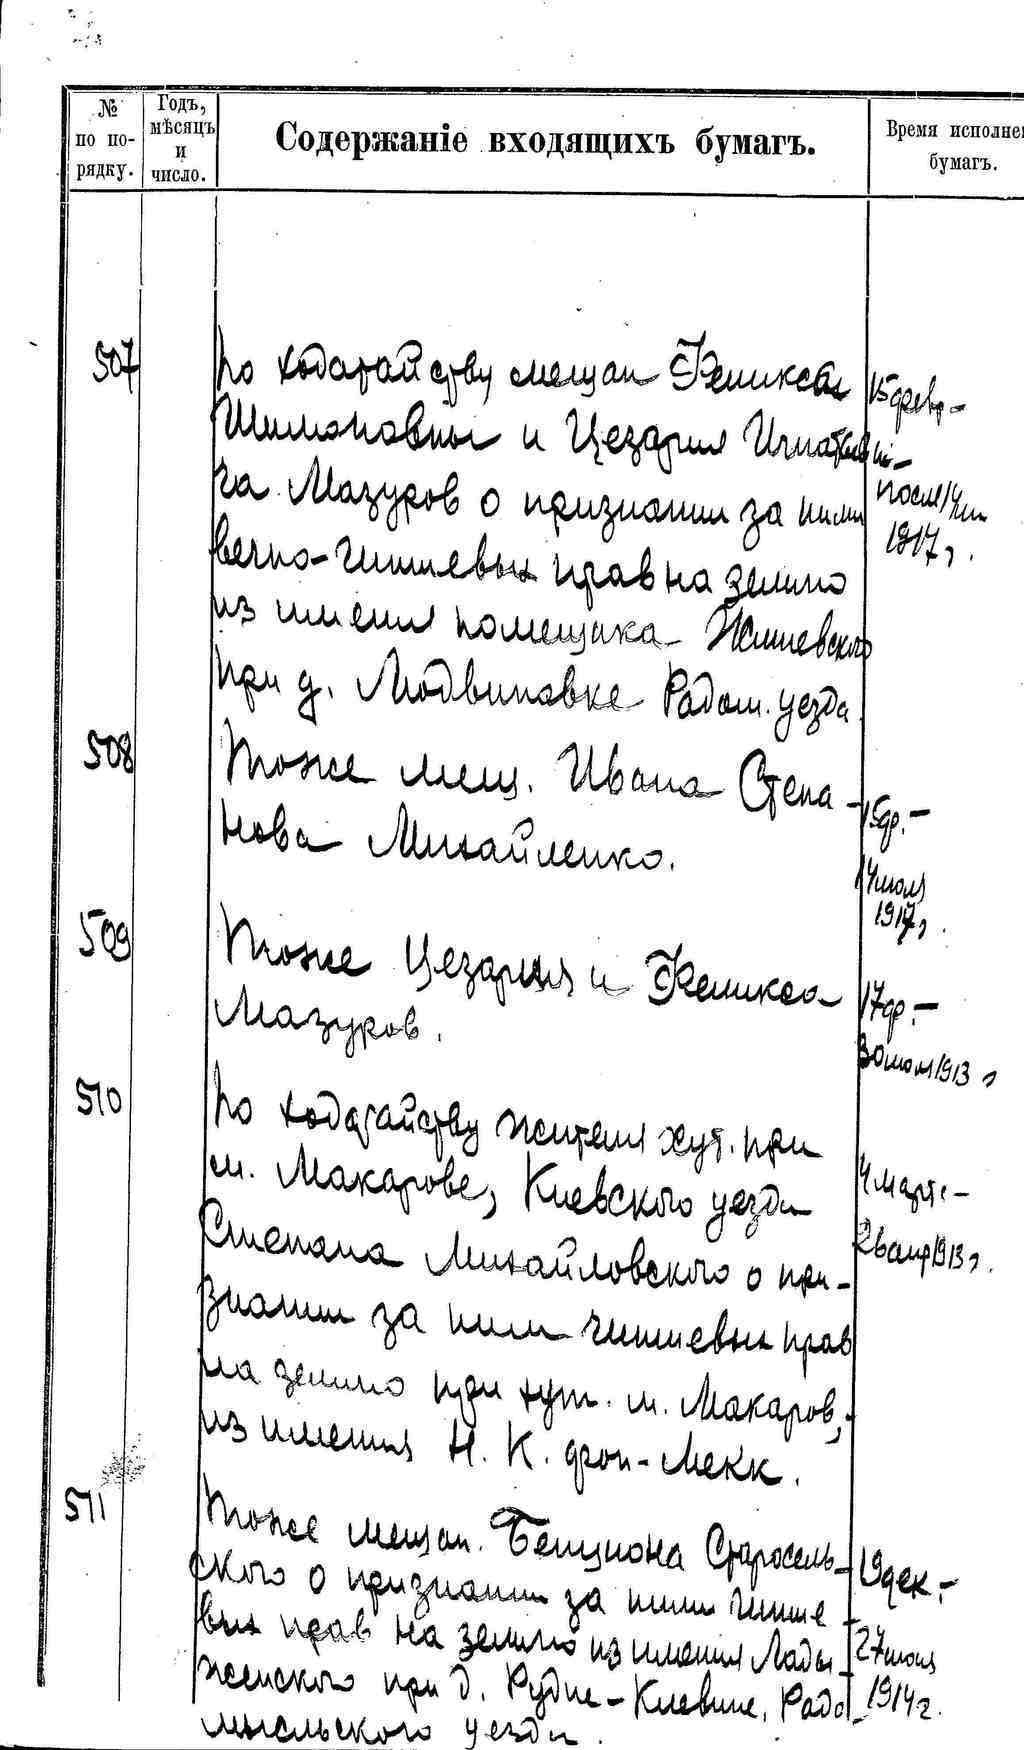 № по по-
рядку.
Годъ,
мѣсяцъ
и
число.
Содержаніе входящихъ бумагъ.
Время исполне
бумагъ.
507
По ходатайству мещан Феликса
Шимоновны и Цезария Игнатьеви
ча Мазуров о признании за ними
вечно-чиншевых прав на землю
из имения помещика
при д. Людвиновке Радом. уезда
15 февр-
после 14
1917 г.
508
тоже мещ. Ивана Степа-
нова Михайленко.
15 ф.-
14 июля
1917 г.
509
Тоже Цезария и Феликса
Мазуров.
17 ф.-
30 1913 г
510
По ходатайству жителя хут. при
м. Макарове, Киевского уезда
Степана Михайловского о при-
знании за ним чиншевых прав
на землю при хут. м. Макаров,
из имения Н. К. фон-Мекк.
4 марта-
26 апр 1913 г.
511
тоже мещан. Бенциона Старосель-
ского о признании за ними чинше-
вых прав на землю из имения Лады-
женского при д. Рудне-Киевице, Радо-
мысльского уезда.
19 дек.-
27 июня
1914 г.